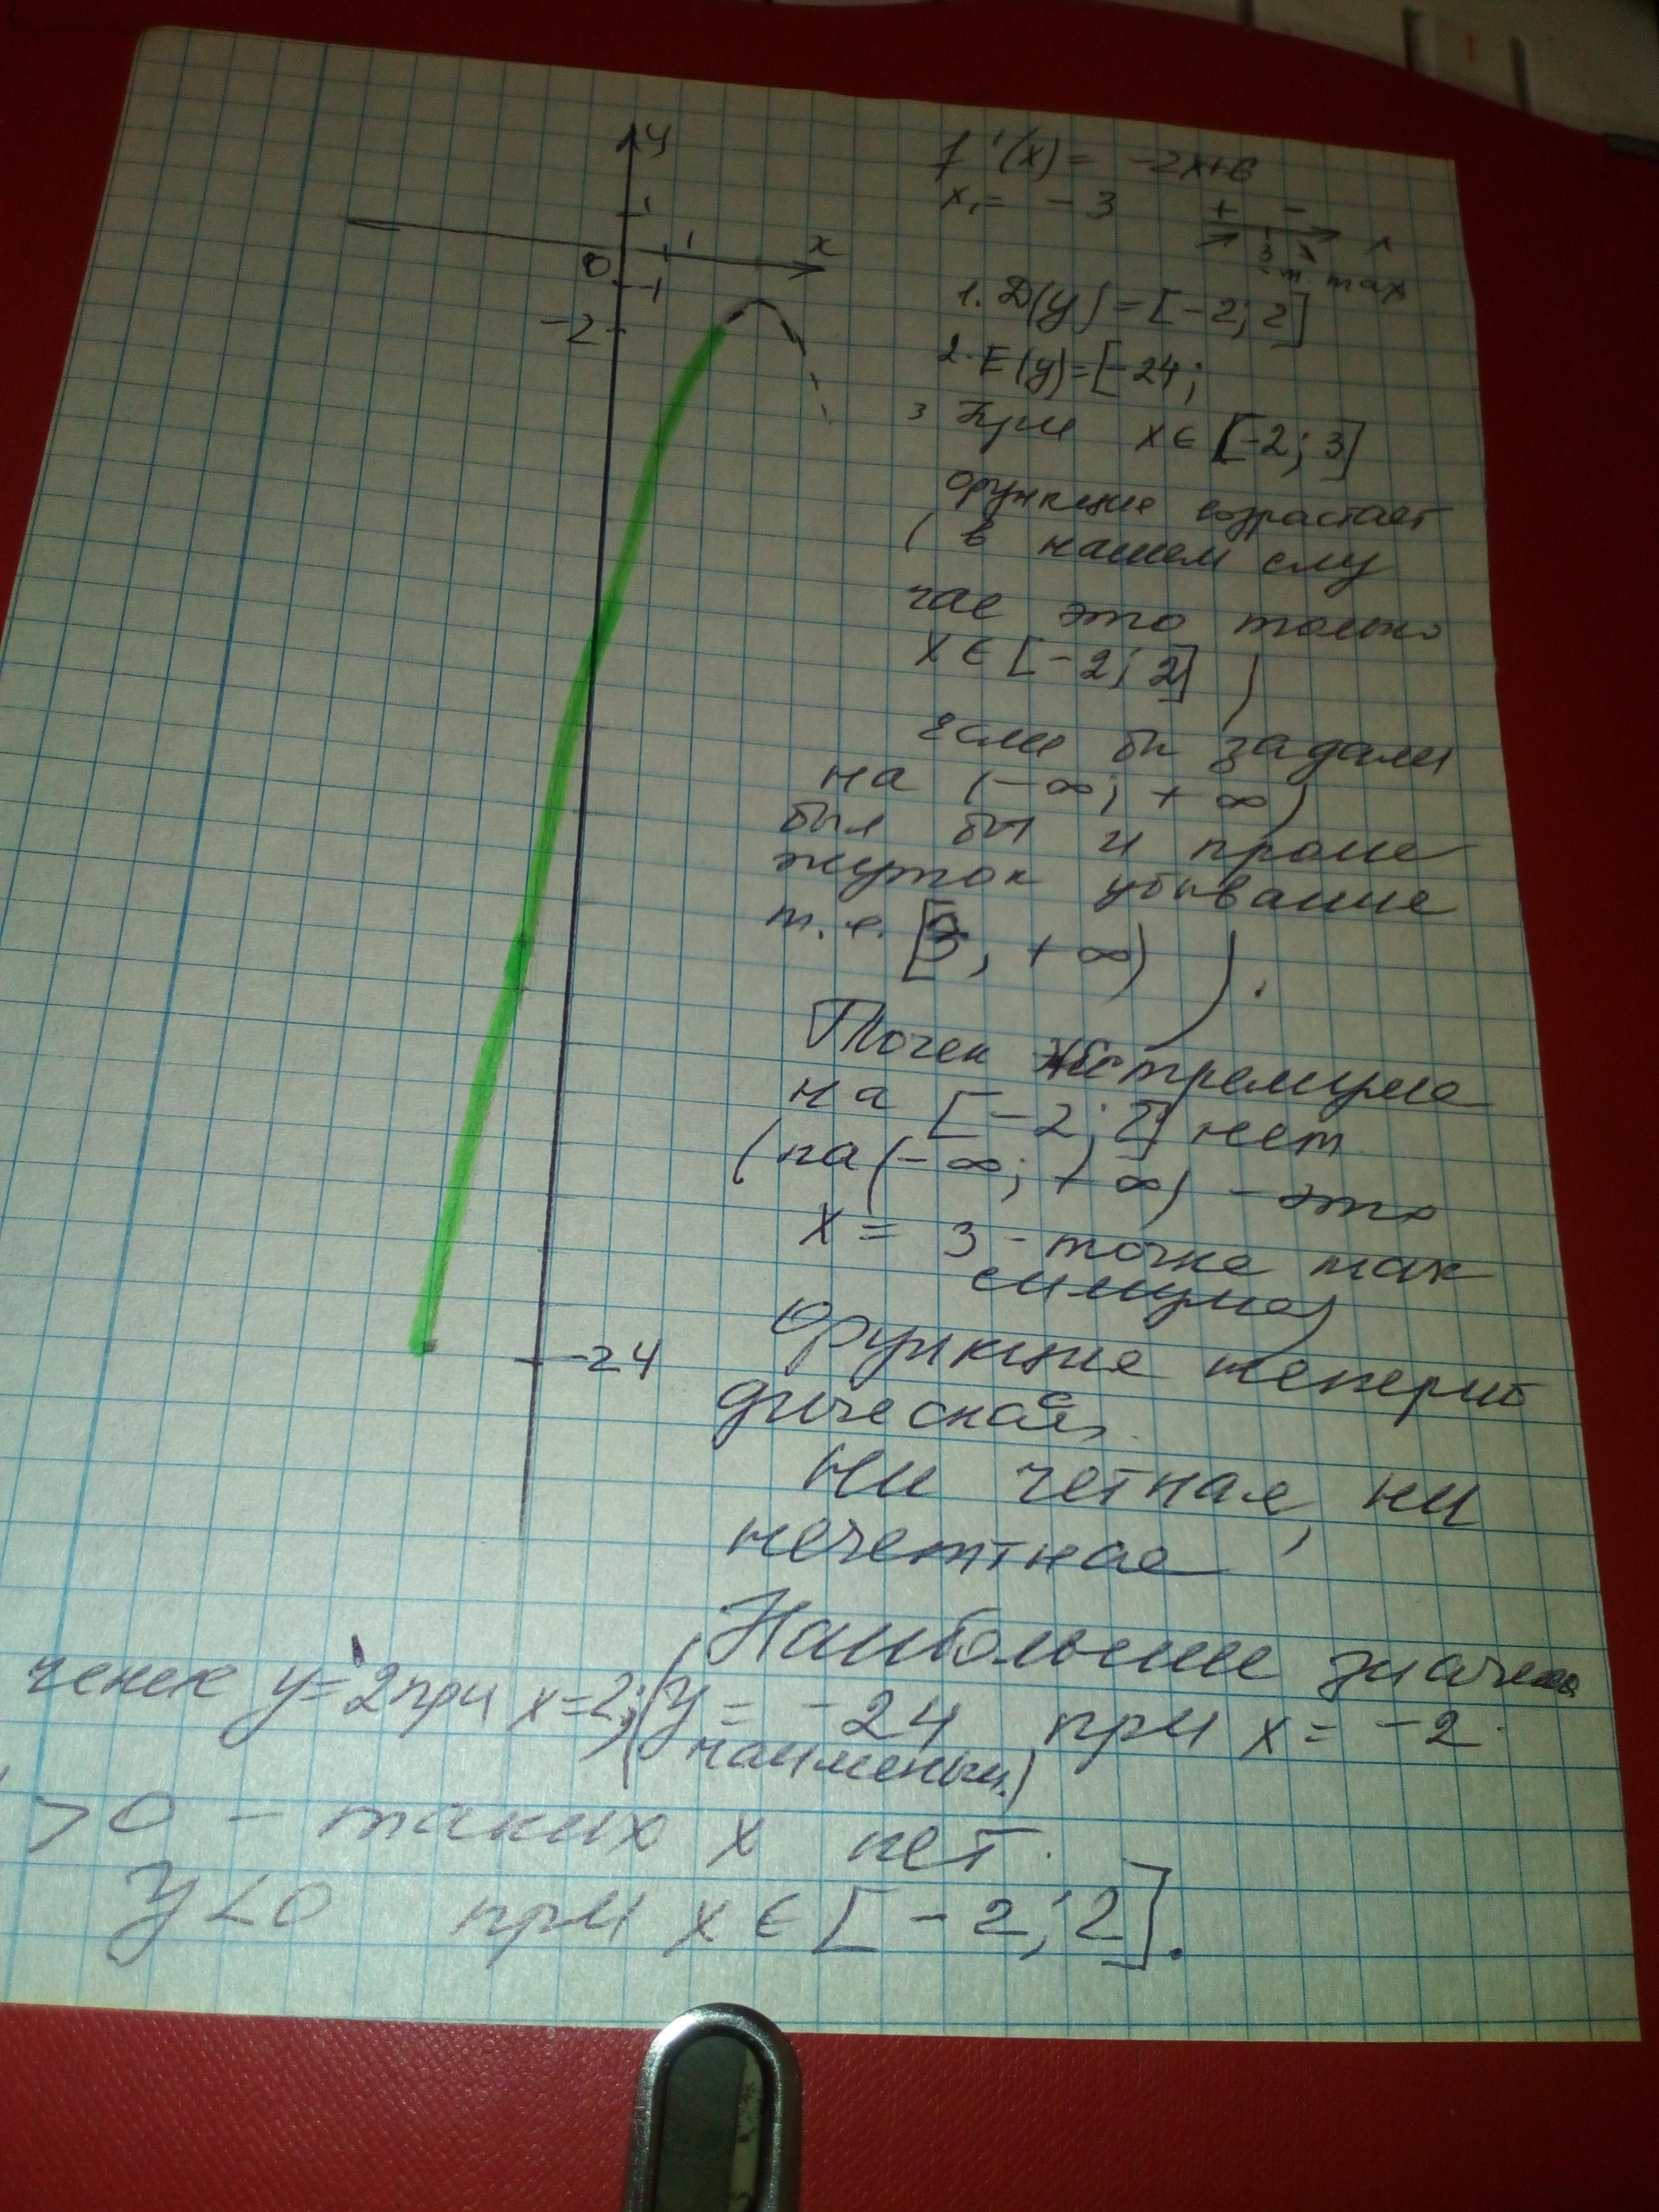 y
1
1
x
0
-1
-2
-24
f'(x) = -2x+6
x₁ = -3
+ -
3
x
т. max
1. D(y) = [-2; 2]
2. E(y)=[-24;
3 При x ∈ [-2; 3]
функция возрастает
( в нашем слу
чае это только
x ∈ [-2; 2] )
Если бы задали
на (-∞; +∞)
был бы и проме
жуток убывания
т. е. [3, +∞) ).
Точек экстремума
на [-2; 2] нет
(на (-∞; +∞) - это
x = 3 - точка мак
симума)
Функция неперио
дическая.
Ни четная, ни
нечетная
Наибольшее значе
чение y=-2 при x=2; (y = -24 при x = -2.
наименьш.)
>0 - таких x нет.
y<0 при x ∈ [-2; 2].